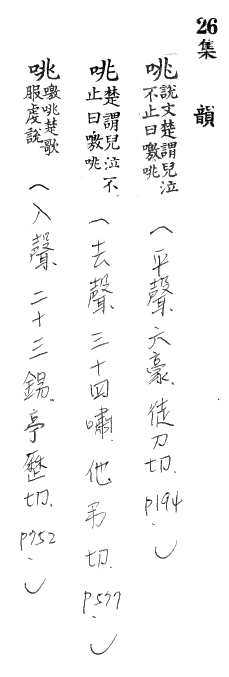 26集韻
咷說文楚謂兒泣不止曰噭咷（平聲、六豪、徒刀切、p194、）
咷楚謂兒泣不止曰噭咷（去聲、三十四嘯、他弔切、p577、）
咷噭咷楚歌服虔說（入聲、二十三錫、亭歷切、p752、）